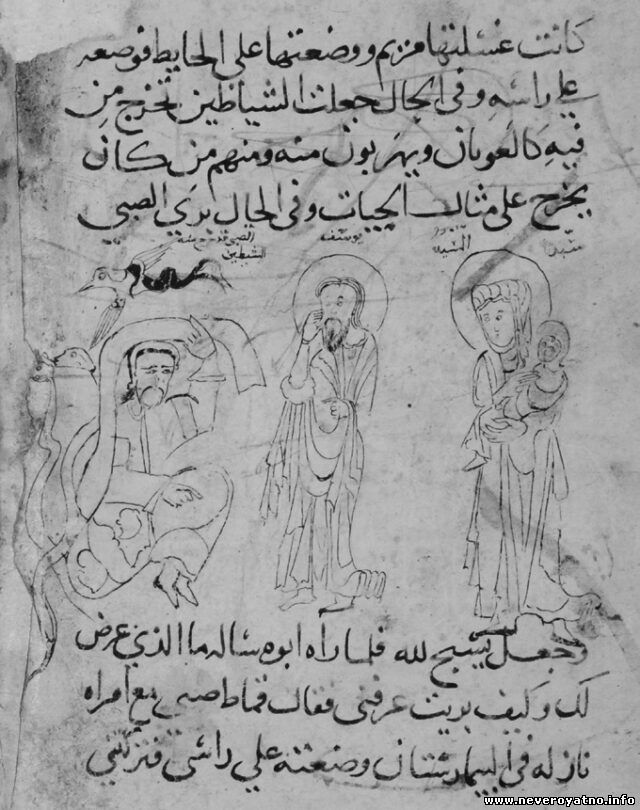 كانت غسلتها مريم ووضعتها على الحايط فوضعه
علي راسه وفى الحال جعلت الشياطين تخرج من
فيه كالغربان ويهربون منه ومنهم من كان
يخرج على مثال الحيات وفى الحال ابرى الصبي
الصبي خرج منه الشياطين
يوسف
السيده
سيدنا
وجعل يسبح لله فلما راه ابوه ساله ما الذي عرض
لك وكيف بريت عرفني فقال قماط صبي مع امراه
نازله فى البيمارستان وضعته علي راسي فتركتني
www.neveroyatno.info